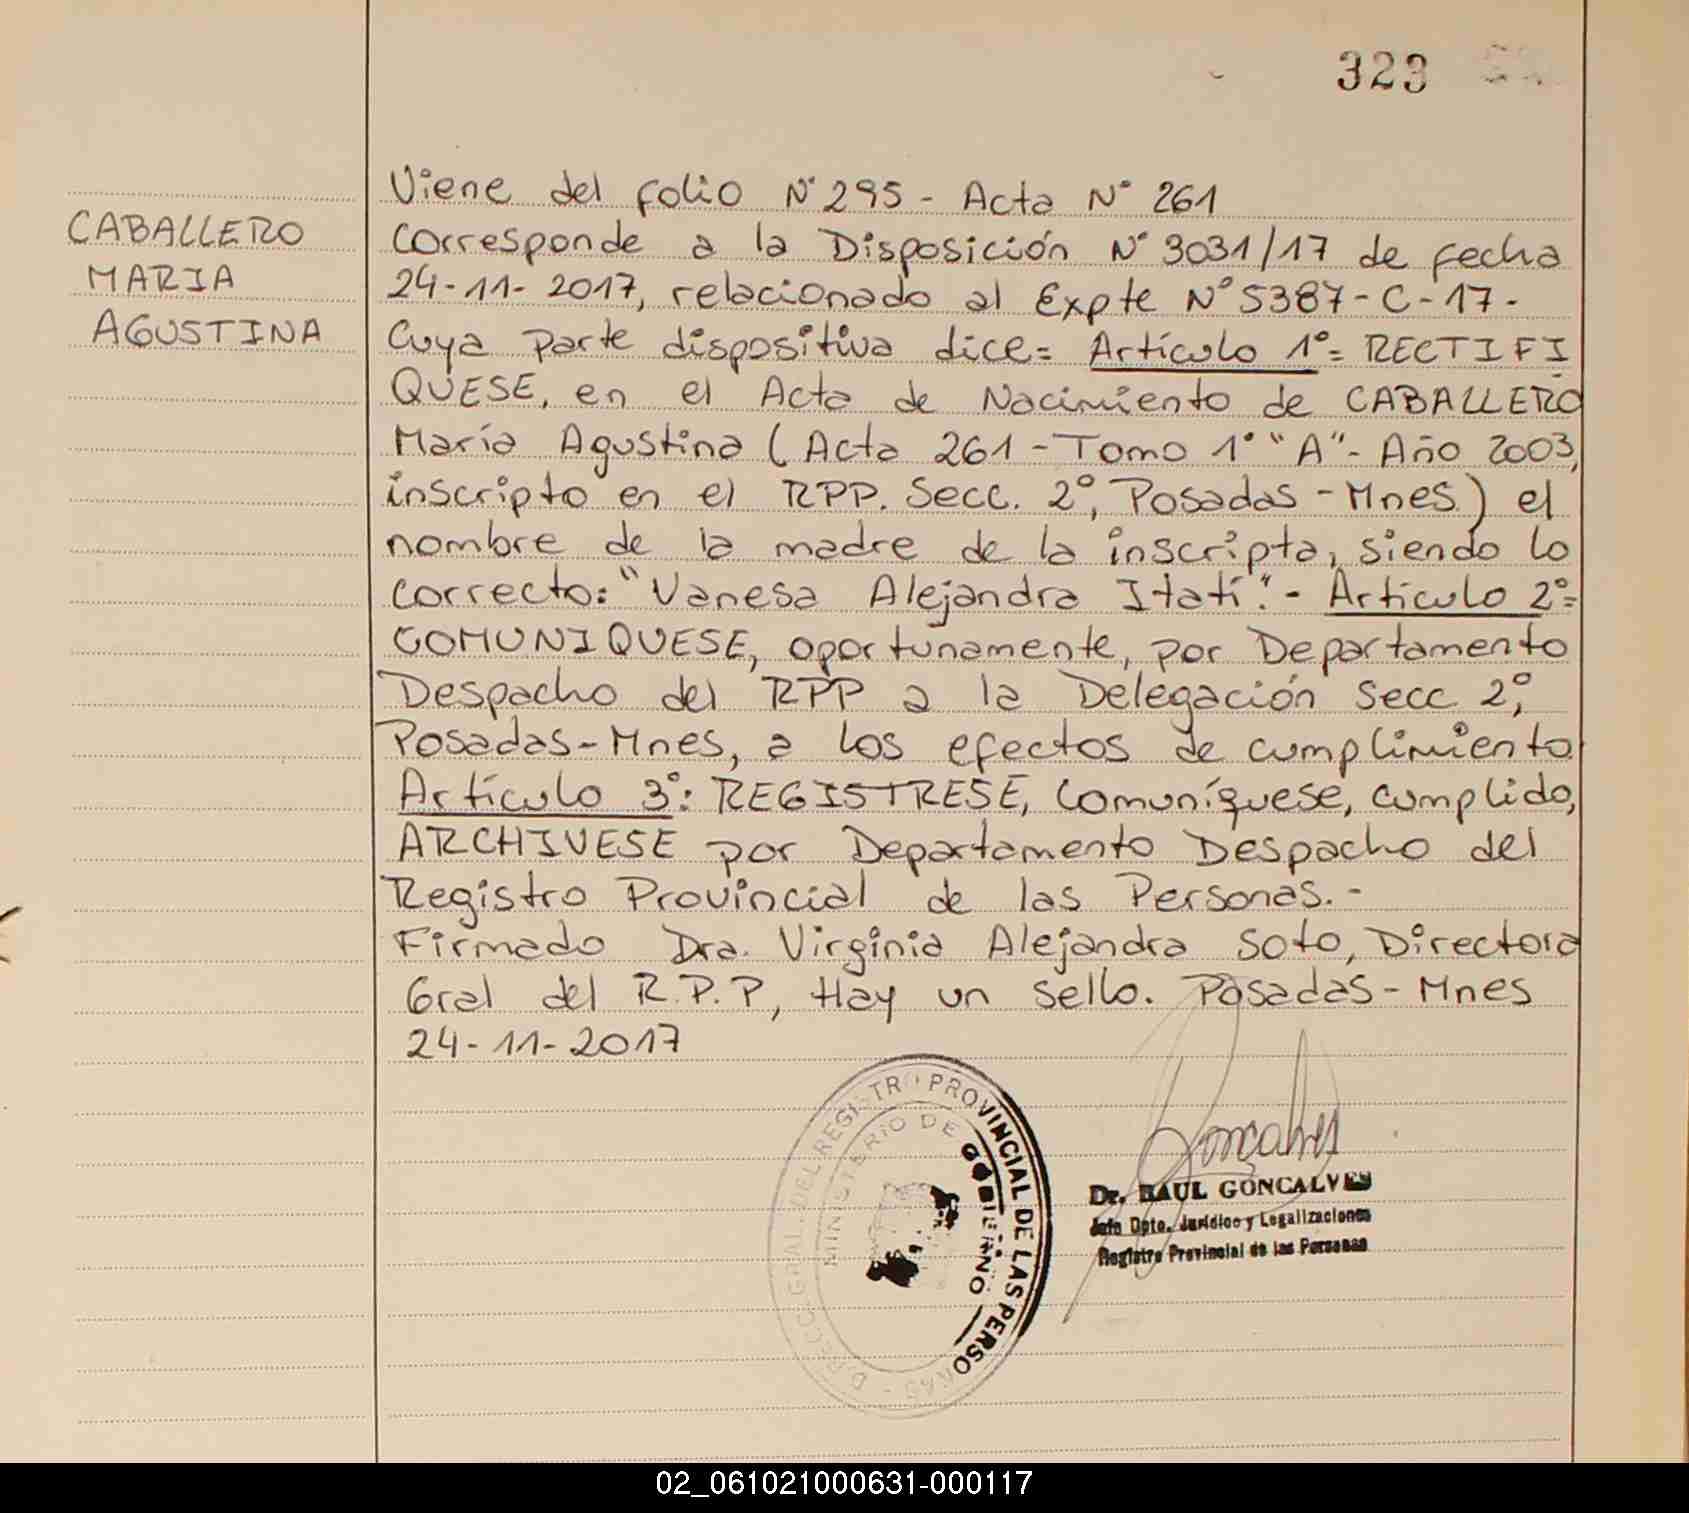 323
Viene del folio N° 295 - Acta N° 261
CABALLERO
MARIA
AGUSTINA
Corresponde a la Disposición N° 3031/17 de fecha
24-11-2017, relacionado al Expte N° 5387-C-17-
Cuya parte dispositiva dice= Artículo 1°= RECTIFI
QUESE, en el Acta de Nacimiento de CABALLERO
María Agustina (Acta 261 - Tomo 1° "A" - Año 2003,
inscripto en el RPP. Secc. 2°, Posadas - Mnes) el
nombre de la madre de la inscripta, siendo lo
correcto: "Vanesa Alejandra Itatí". - Artículo 2°=
COMUNIQUESE, oportunamente, por Departamento
Despacho del RPP a la Delegación Secc 2°,
Posadas-Mnes, a los efectos de cumplimiento
Artículo 3°: REGISTRESE, Comuníquese, cumplido,
ARCHIVESE por Departamento Despacho del
Registro Provincial de las Personas.-
Firmado Dra. Virginia Alejandra Soto, Directora
Gral del R.P.P, Hay un sello. Posadas - Mnes
24-11-2017
DIRECC. GRAL. DEL REGISTRO PROVINCIAL DE LAS PERSONAS
MINISTERIO DE GOBIERNO
Goncalves
Dr. RAUL GONCALVES
Jefe Dpto. Jurídico y Legalizaciones
Registro Provincial de las Personas
02_061021000631-000117